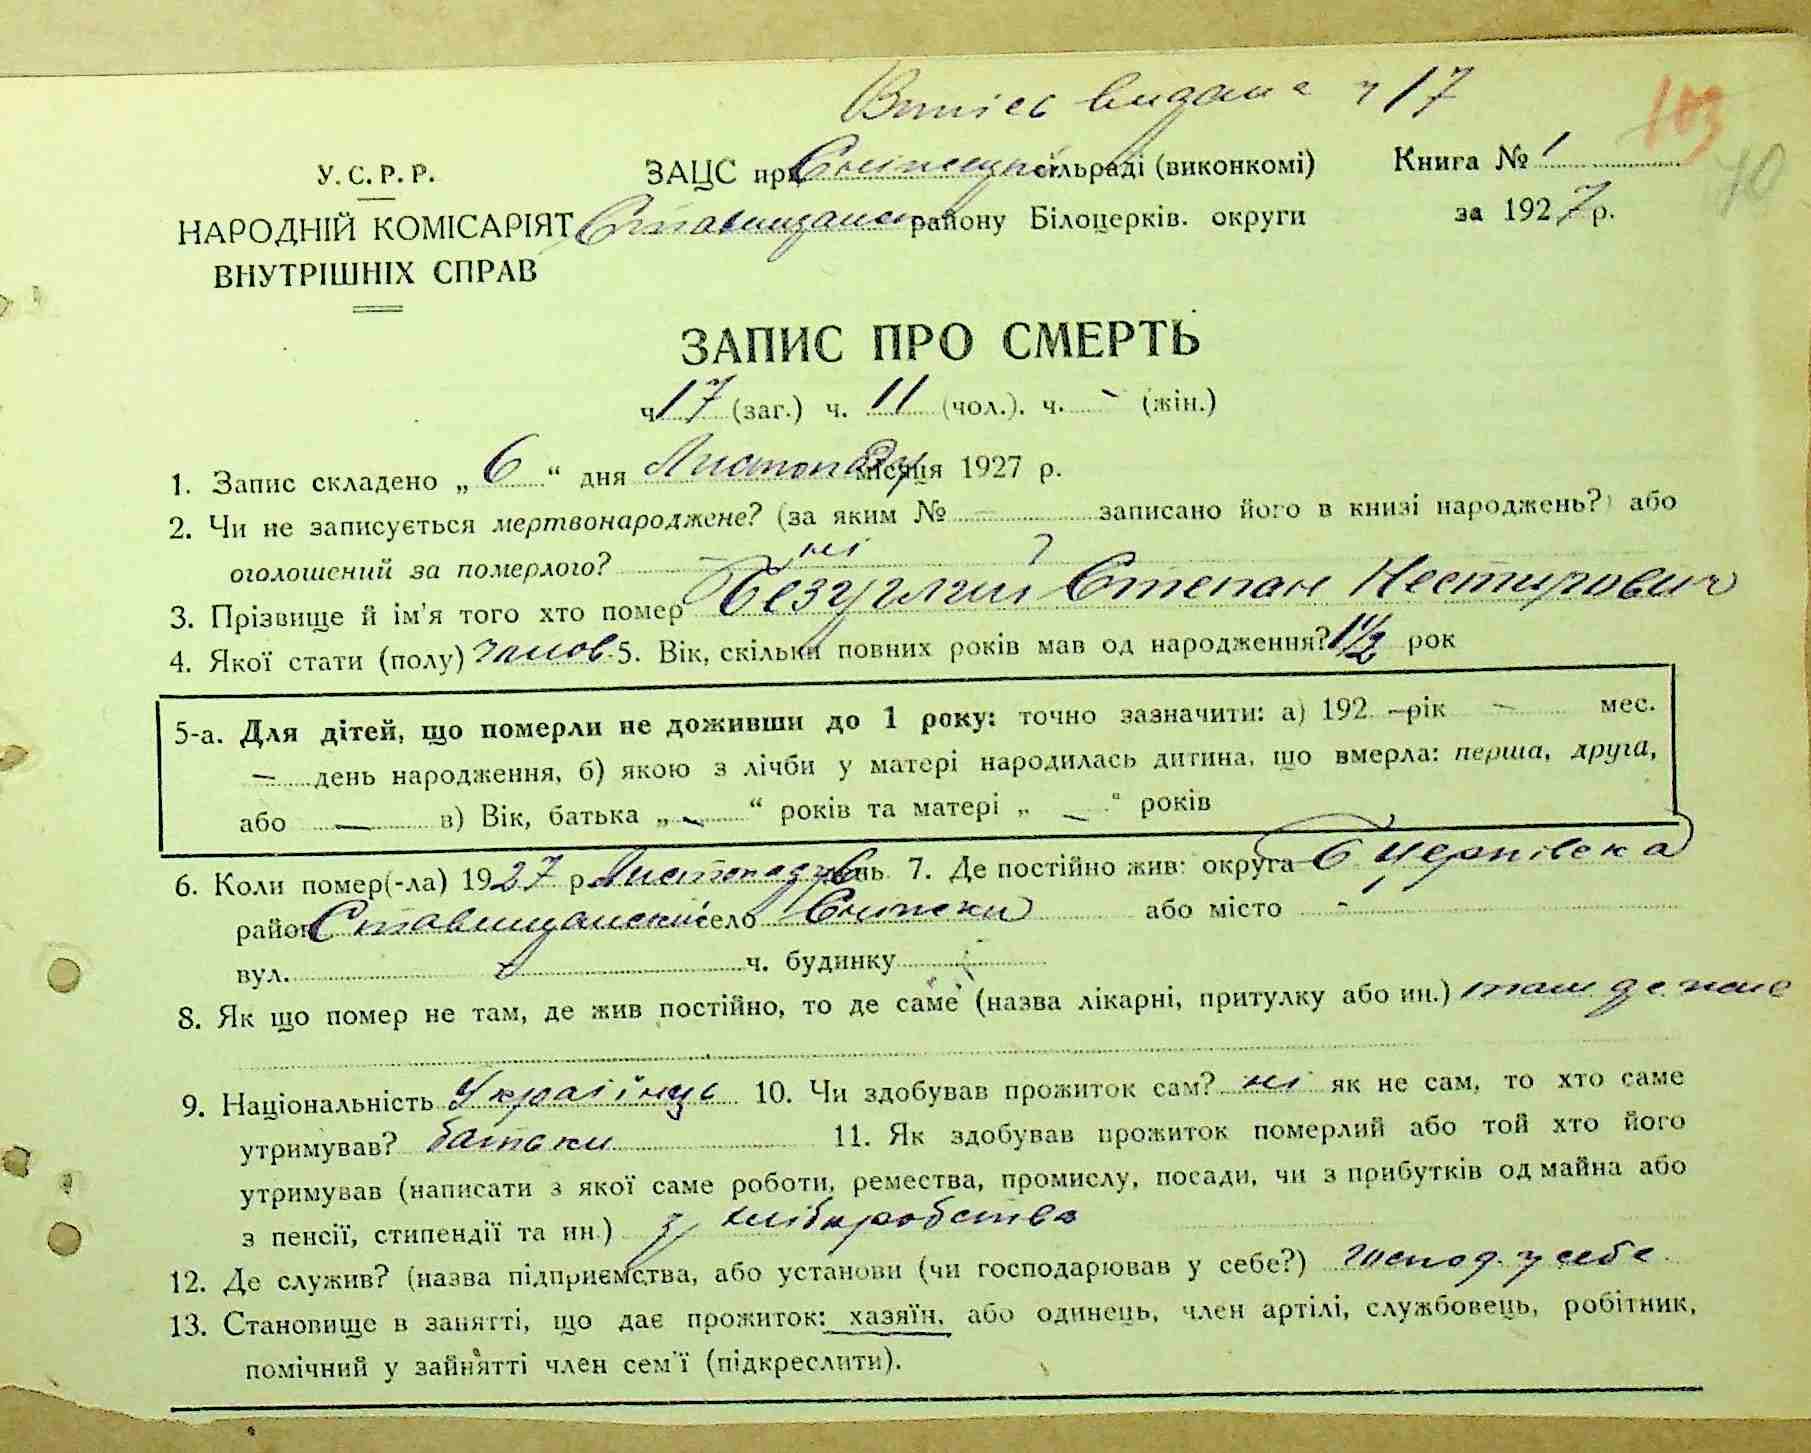 Випись видана ч 17
103
40
У. С. Р. Р.
НАРОДНІЙ КОМІСАРІЯТ
ВНУТРІШНІХ СПРАВ
ЗАЦС при сільраді (виконкомі)
Ставищанськ району Білоцерків. округи
Книга № 1
за 1927 р.
ЗАПИС ПРО СМЕРТЬ
ч 17 (заг.) ч. 11 (чол.). ч. - (жін.)
1. Запис складено „ 6 “ дня Листопаду місяця 1927 р.
2. Чи не записується мертвонароджене? (за яким № - записано його в книзі народжень?) або
оголошений за померлого? ні
3. Прізвище й ім'я того хто помер Безуглий Степан Нестирович
4. Якої стати (полу) чолов 5. Вік, скільки повних років мав од народження? 1 1/2 рок
5-а. Для дітей, що померли не доживши до 1 року: точно зазначити: а) 192 – рік – мес.
– день народження, б) якою з лічби у матері народилась дитина, що вмерла: перша, друга,
або — в) Вік, батька „ - “ років та матері „ - “ років
6. Коли помер(-ла) 1927 р Листопаду 6 нь 7. Де постійно жив: округа Б Церківська
район Ставищанский село Снітки або місто -
вул. - ч. будинку -
8. Як що помер не там, де жив постійно, то де саме (назва лікарні, притулку або ин.) там де жив
9. Національність Українць 10. Чи здобував прожиток сам? ні як не сам, то хто саме
утримував? батьки 11. Як здобував прожиток померлий або той хто його
утримував (написати з якої саме роботи, ремества, промислу, посади, чи з прибутків од майна або
з пенсії, стипендії та ин.) з хліборобства
12. Де служив? (назва підприємства, або установи (чи господарював у себе?) господ. у себе
13. Становище в занятті, що дає прожиток: хазяїн, або одинець, член артілі, службовець, робітник,
помічний у зайнятті член сем'ї (підкреслити).